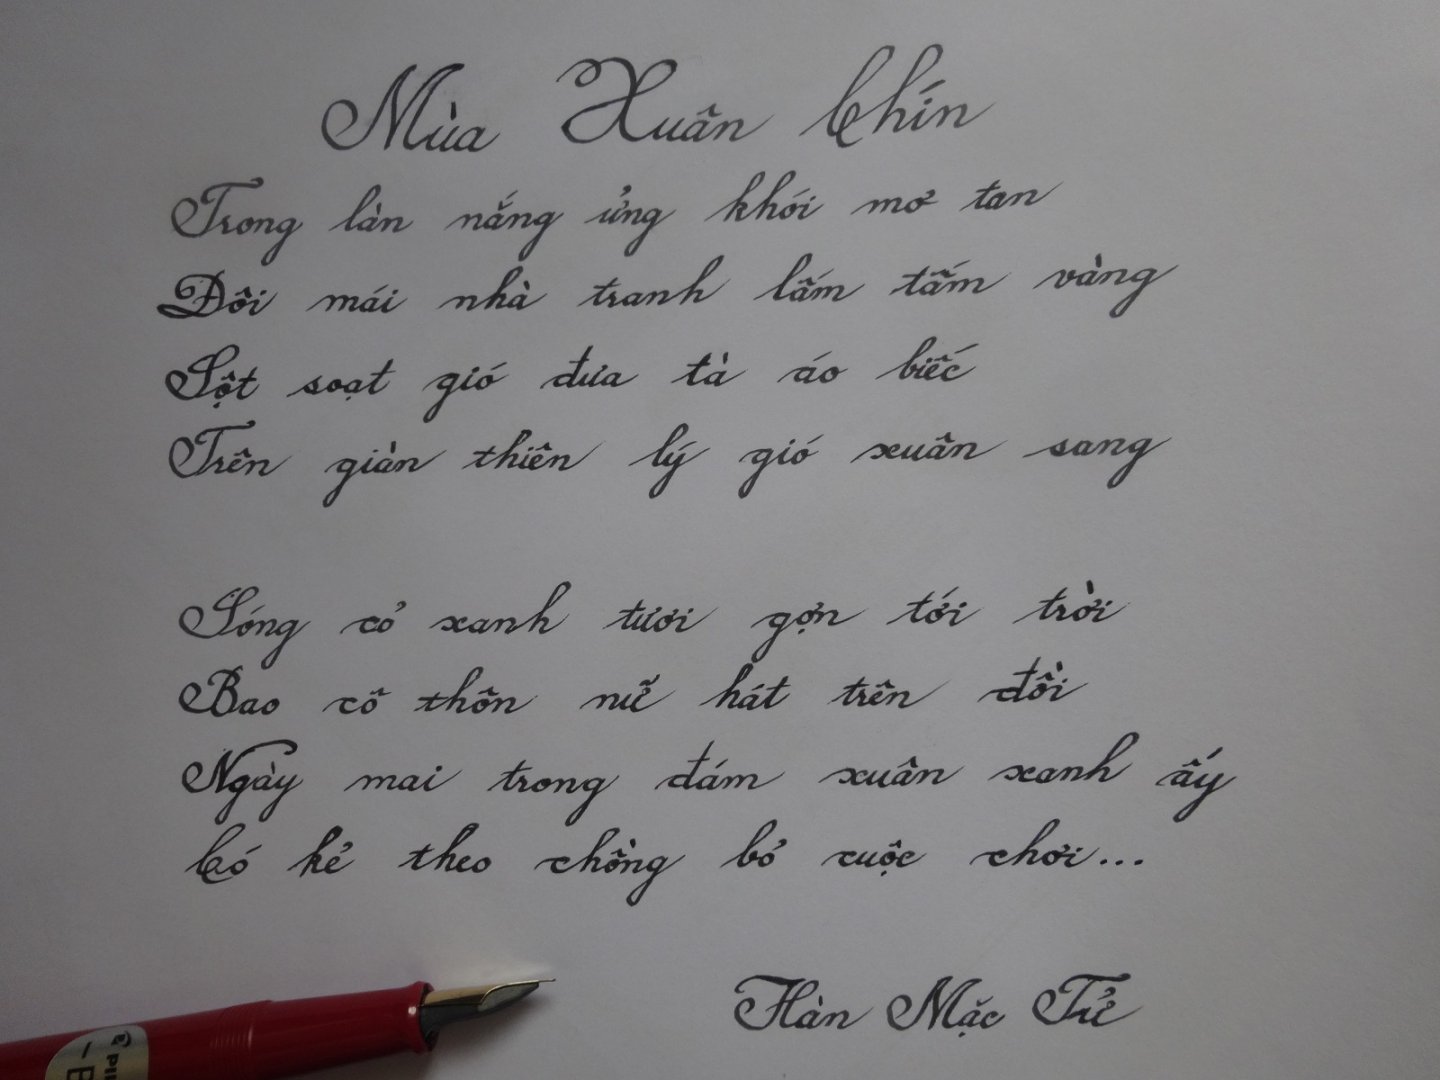 Mùa Xuân Chín
Trong làn nắng ửng khói mơ tan
Đôi mái nhà tranh lấm tấm vàng
Sột soạt gió đưa tà áo biếc
Trên giàn thiên lý gió xuân sang
Sóng cỏ xanh tươi gợn tới trời
Bao cô thôn nữ hát trên đồi
Ngày mai trong đám xuân xanh ấy
Có kẻ theo chồng bỏ cuộc chơi...
Hàn Mặc Tử